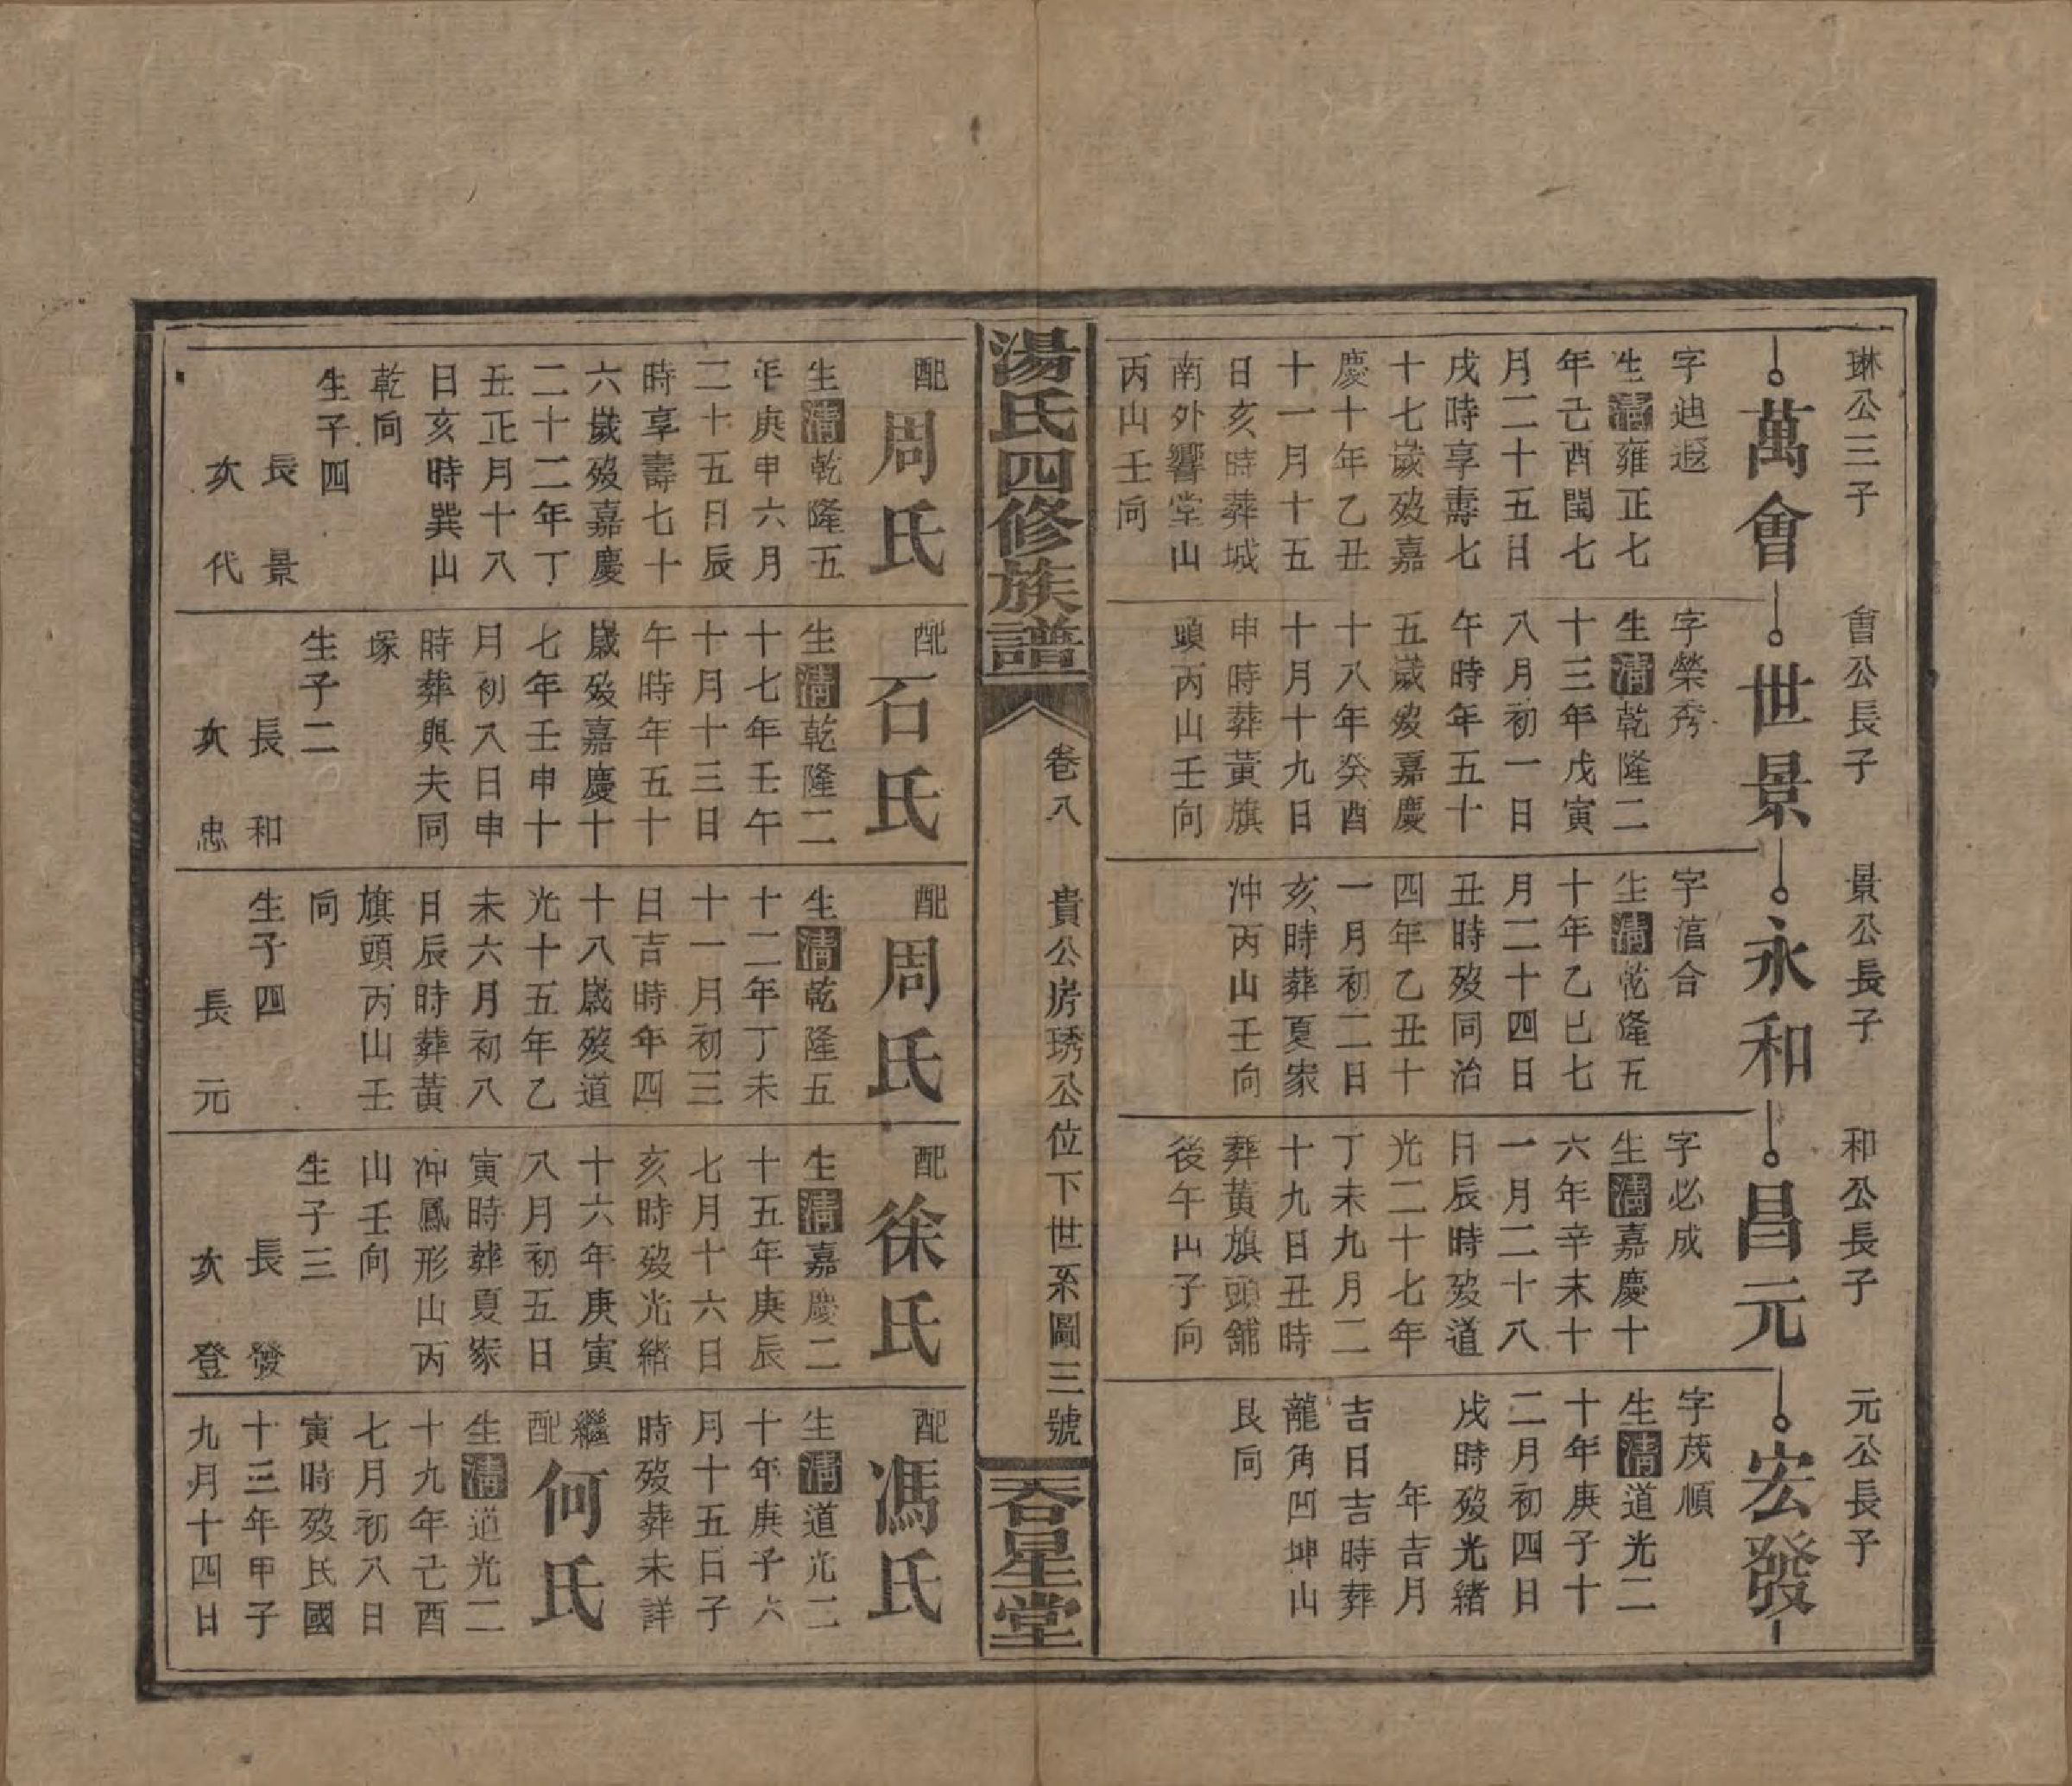 琳公三子
萬會
字迪遐
生清雍正七
年己酉閏七
月二十五日
戌時享壽七
十七歲歿嘉
慶十年乙丑
十一月十五
日亥時葬城
南外響堂山
丙山壬向
會公長子
世景
字榮秀
生清乾隆二
十三年戊寅
八月初一日
午時年五十
五歲歿嘉慶
十八年癸酉
十月十九日
申時葬黃旗
頭丙山壬向
景公長子
永和
字合
生清乾隆五
十年乙巳七
月二十四日
丑時歿同治
四年乙丑十
一月初二日
亥時葬夏家
冲丙山壬向
和公長子
昌元
字必成
生清嘉慶十
六年辛未十
一月二十八
日辰時歿道
光二十七年
丁未九月二
十九日丑時
葬黃旗頭舖
後午山子向
元公長子
宏發
字茂順
生清道光二
十年庚子十
二月初四日
戌時歿光緒
年吉月
吉日吉時葬
龍角凹坤山
艮向
湯氏四修族譜
卷八
貴公房琇公位下世系圖三號
吞星堂
配
周氏
生清乾隆五
年庚申六月
二十五日辰
時享壽七十
六歲歿嘉慶
二十二年丁
丑正月十八
日亥時巽山
乾向
生子四
長景
次代
配
石氏
生清乾隆二
十七年壬午
十月十三日
午時年五十
歲歿嘉慶十
七年壬申十
月初八日申
時葬與夫同
塚
生子二
長和
次忠
配
周氏
生清乾隆五
十二年丁未
十一月初三
日吉時年四
十八歲歿道
光十五年乙
未六月初八
日辰時葬黃
旗頭丙山壬
向
生子四
長元
配
徐氏
生清嘉慶二
十五年庚辰
七月十六日
亥時歿光緒
十六年庚寅
八月初五日
寅時葬夏家
冲鳳形山丙
山壬向
生子三
長發
次登
配
馮氏
生清道光二
十年庚子六
月十五日子
時歿葬未詳
繼配
何氏
生清道光二
十九年己酉
七月初八日
寅時歿民國
十三年甲子
九月十四日